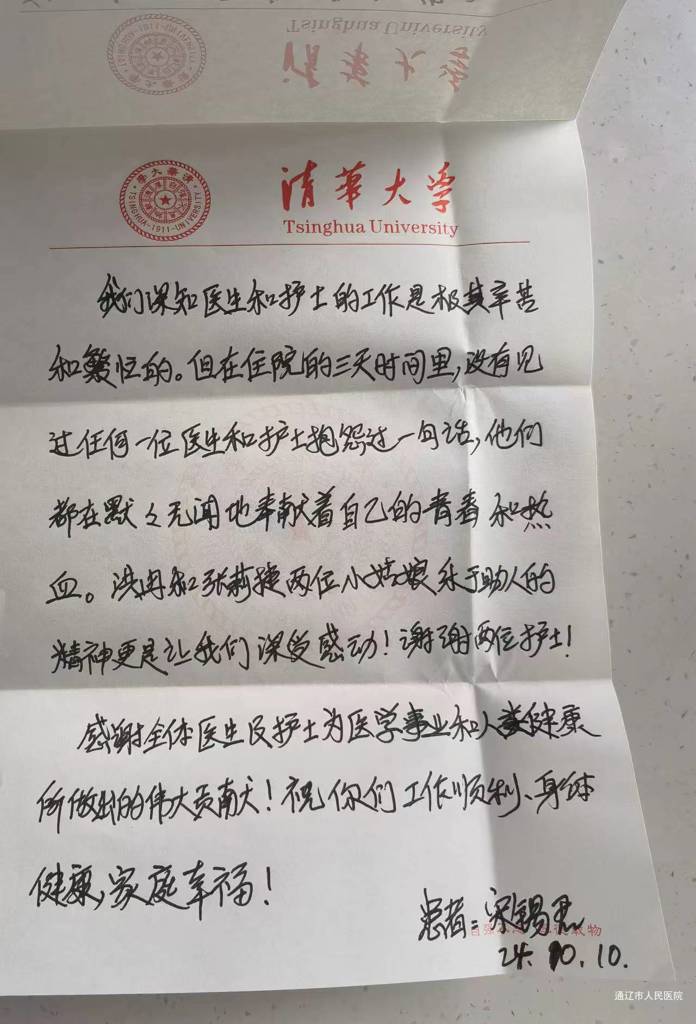 Tsinghua University
清华大学
清華大學
TSINGHUA-1911-UNIVERSITY
清华大学
Tsinghua University
我们深知医生和护士的工作是极其辛苦
和繁忙的。但在住院的三天时间里,没有见
过任何一位医生和护士抱怨过一句话,他们
都在默々无闻地奉献着自己的青春和热
血。洪冉和张莉捷两位小姑娘乐于助人的
精神更是让我们深受感动!谢谢两位护士!
感谢全体医生及护士为医学事业和人类健康
所做出的伟大贡献!祝你们工作顺利、身体
健康,家庭幸福!
患者:宋锡君
24.10.10.
通辽市人民医院